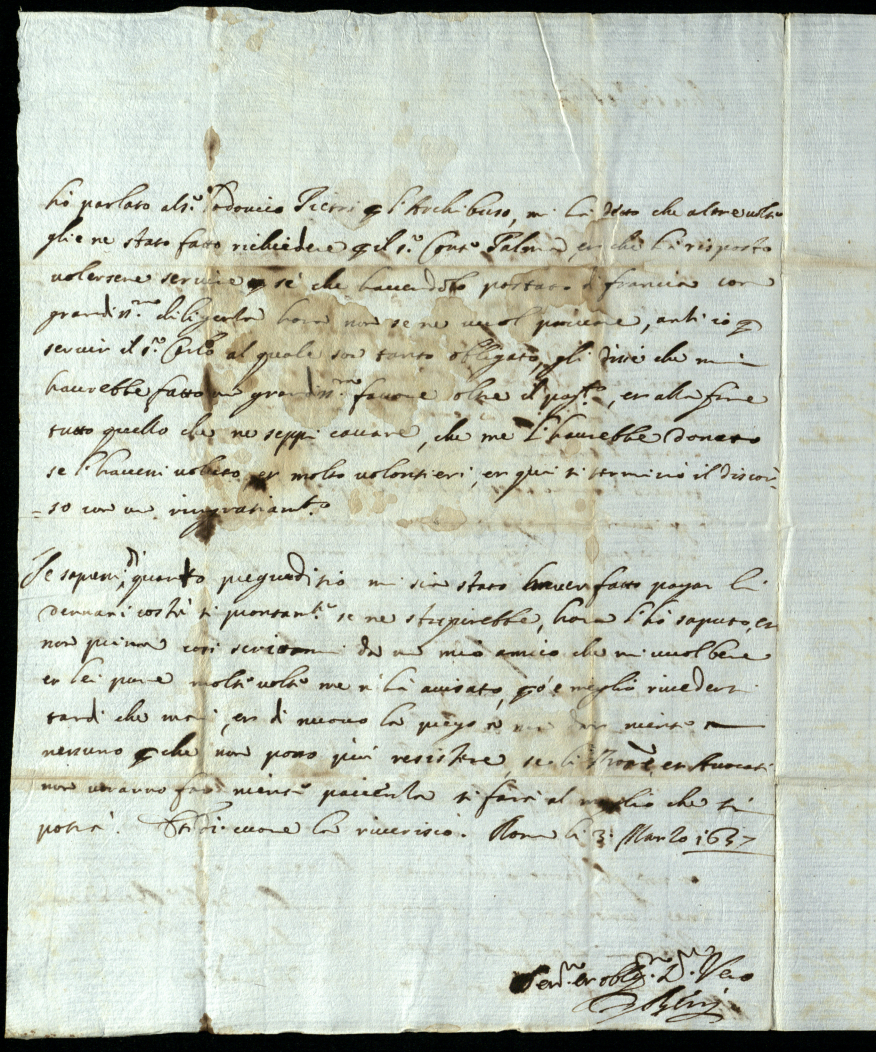 hò parlato al s.r Lodovico Pierri p l'Archibuso, mi hà detto che altre volte
gliene stato fatto richiedere p il s.r Conte Palma, et che hà risposto
volersene servire p sè che havendolo portato di francia con
grandiss.mo diligenza hora non se ne vuol privare, anti io p
servir il s.r Carlo al quale son tanto obligato, gli dissi che mi
haverebbe fatto un grandiss.mo favore oltre il pag.to, et alla fine
tutto quello che ne seppi cavare, che me l'haverebbe donato
se l'havessi voluto, et molto volontieri, et qui si terminò il discor=
=so con un ringratiam.to
Se sapessi di quanto pregiuditio mi sia stato haver fatto pagar li
dennari costà si prontam.te se ne stupirebbe, hora l'hò saputo, et
non prima così scrittomi da un mio amico che mi vuol bene
et lei pure molte volte me n'hà avisato, p ò è meglio ravedersi
tardi che mai, et di nuovo la prego à non dar niente à
nessuno p che non posso più resistere, se li Proc.ri et Avocati
non voranno far niente patienza si farà al meglio che si
potrà. Et di cuore la riverisco. Roma li 3 Marzo 1637
Ser.re et oblig.mo D.mo Vero